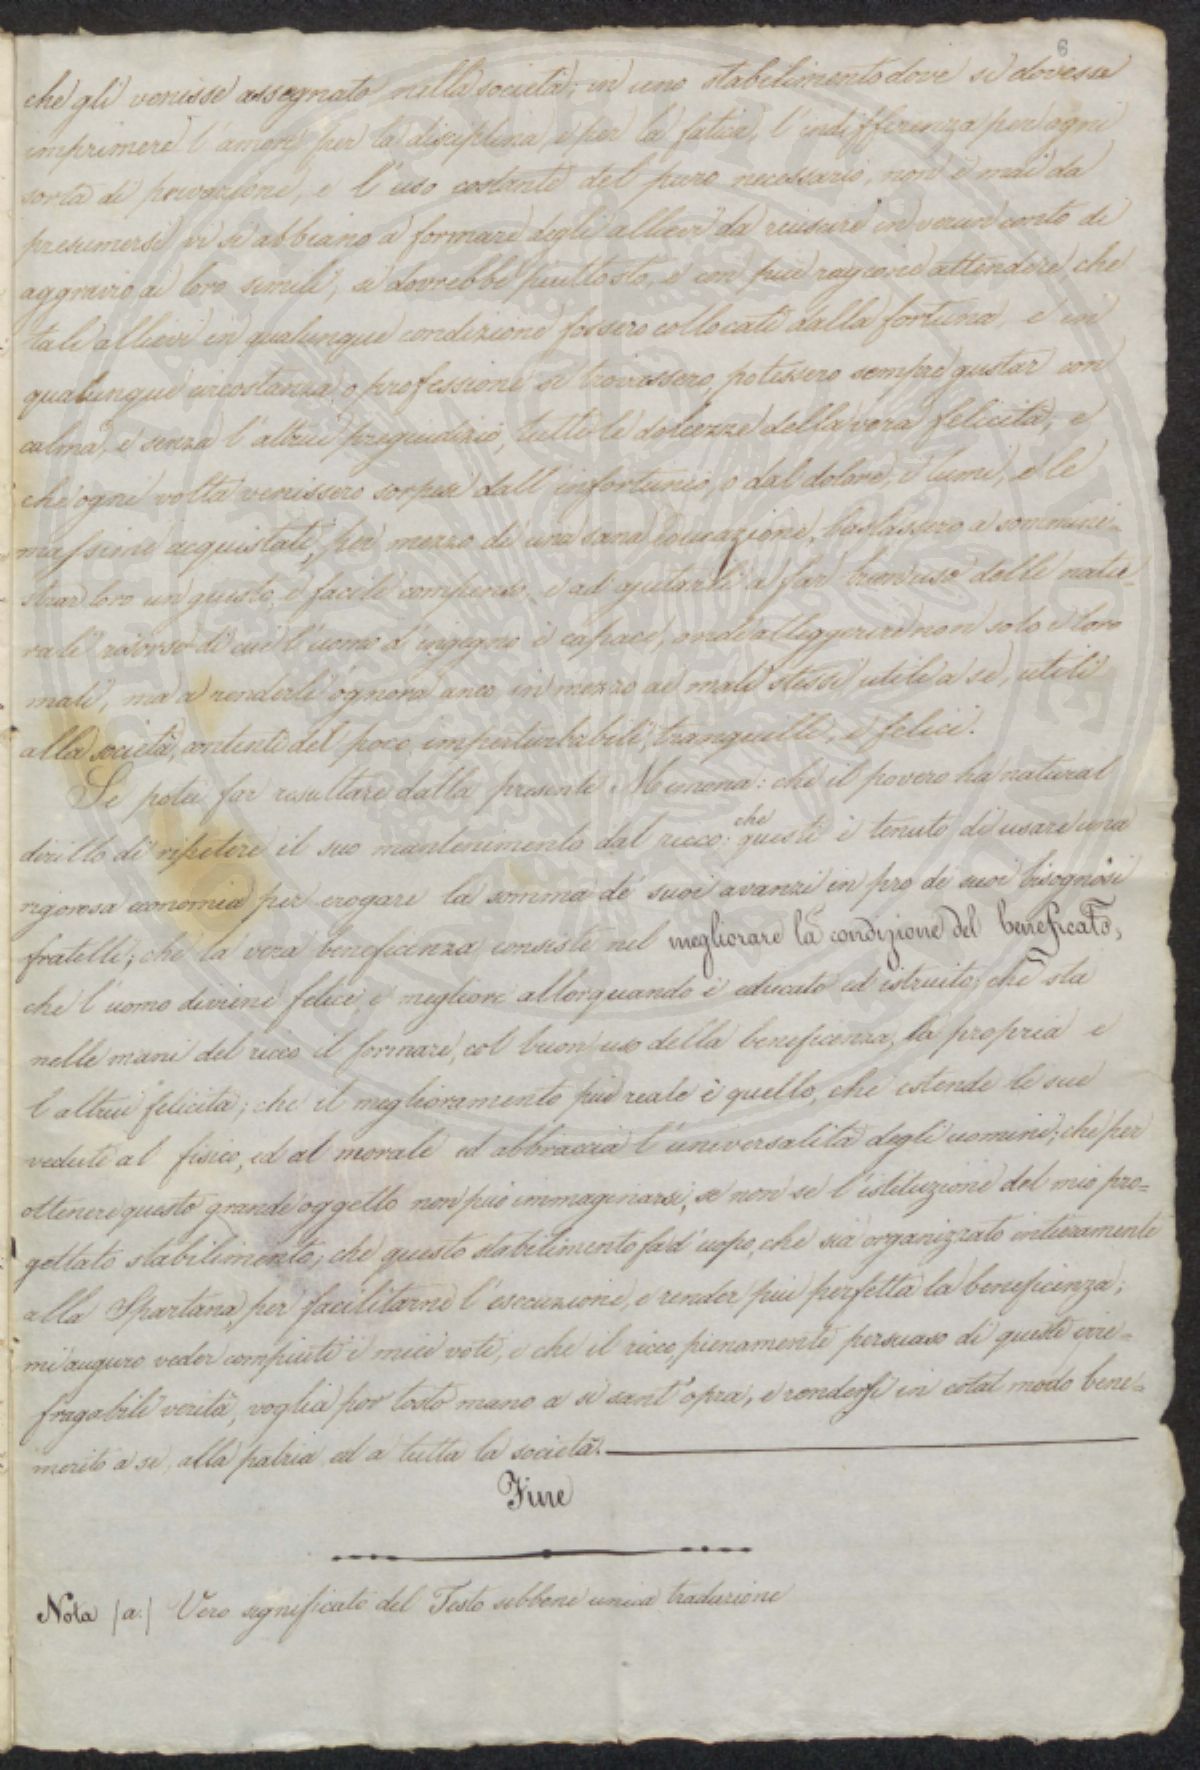 6
che gli venisse assegnato nella società; in uno stabilimento dove si dovesse
imprimere l'amore per la disciplina, e per la fatica, l'indifferenza per ogni
sorta di privazione, e l'uso costante del puro necessario, non è mai da
presumersi vi si abbiano a formare degli allievi da riuscire in verun conto di
aggravio ai loro simili; si dovrebbe piuttosto, e con più ragione attendere che
tali allievi in qualunque condizione fossero collocati dalla fortuna, e in
qualunque circostanza o professione si trovassero, potessero sempre gustar con
calma, e senza l'altrui pregiudizio, tutte le dolcezze della vera felicità, e
che ogni volta venissero sorpresi dall'infortunio, o dal dolore, i lumi, e le
massime acquistate, per mezzo di una sana educazione, bastassero a sommini-
strar loro un giusto, e facile compenso, e ad ajutarli a far buon uso delle natu-
rali risorse di cui l'uomo d'ingegno è capace, onde alleggerire non solo i loro
mali, ma a renderli ognora anco in mezzo ai mali stessi, utili a se, utili
alla società, contenti del poco, imperturbabili, tranquilli, e felici.
Se potei far risultare dalla presente Memoria: che il povero ha natural
diritto di ripetere il suo mantenimento dal ricco: che questi è tenuto di usare una
rigorosa economia per erogare la somma de' suoi avanzi in pro di suoi bisognosi
fratelli; che la vera beneficenza consiste nel megliorare la condizione del beneficato,
che l'uomo diviene felice, e megliore allorquando è educato ed istruito; che sta
nelle mani del ricco il formare, col buon uso della beneficenza, la propria e
l'altrui felicità; che il meglioramento più reale è quello, che estende le sue
vedute al fisico, ed al morale ed abbraccia l'universalità degli uomini; che per
ottenere questo grande oggetto non può immaginarsi, se non se l'istituzione del mio pro=
gettato stabilimento; che questo stabilimento fa d'uopo, che sia organizzato intieramente
alla Spartana, per facilitarne l'esecuzione, e render più perfetta la beneficenza;
mi auguro veder compiuti i miei voti, e che il ricco, pienamente persuaso di queste irre=
fragabili verità, voglia por tosto mano a sì sant'opra, e rendersi in cotal modo bene=
merito a se, alla patria ed a tutta la società.
Fine
Nota (a.) Vero significato del Testo sebbene unica traduzione